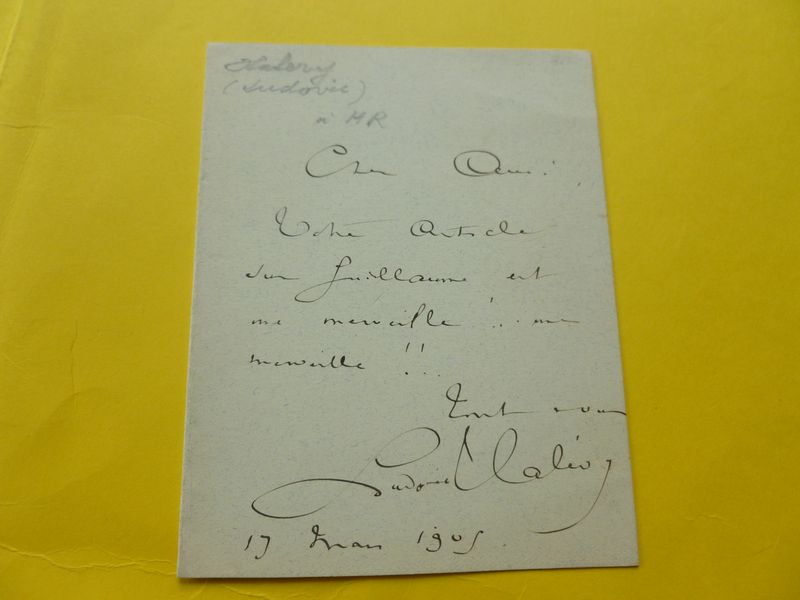 Halevy
(Ludovic)
à HR
Cher Ami,
Votre article
sur Guillaume est
une merveille !.. une
merveille !!..
Tout à vous
Ludovic Halévy
17 Mars 1905